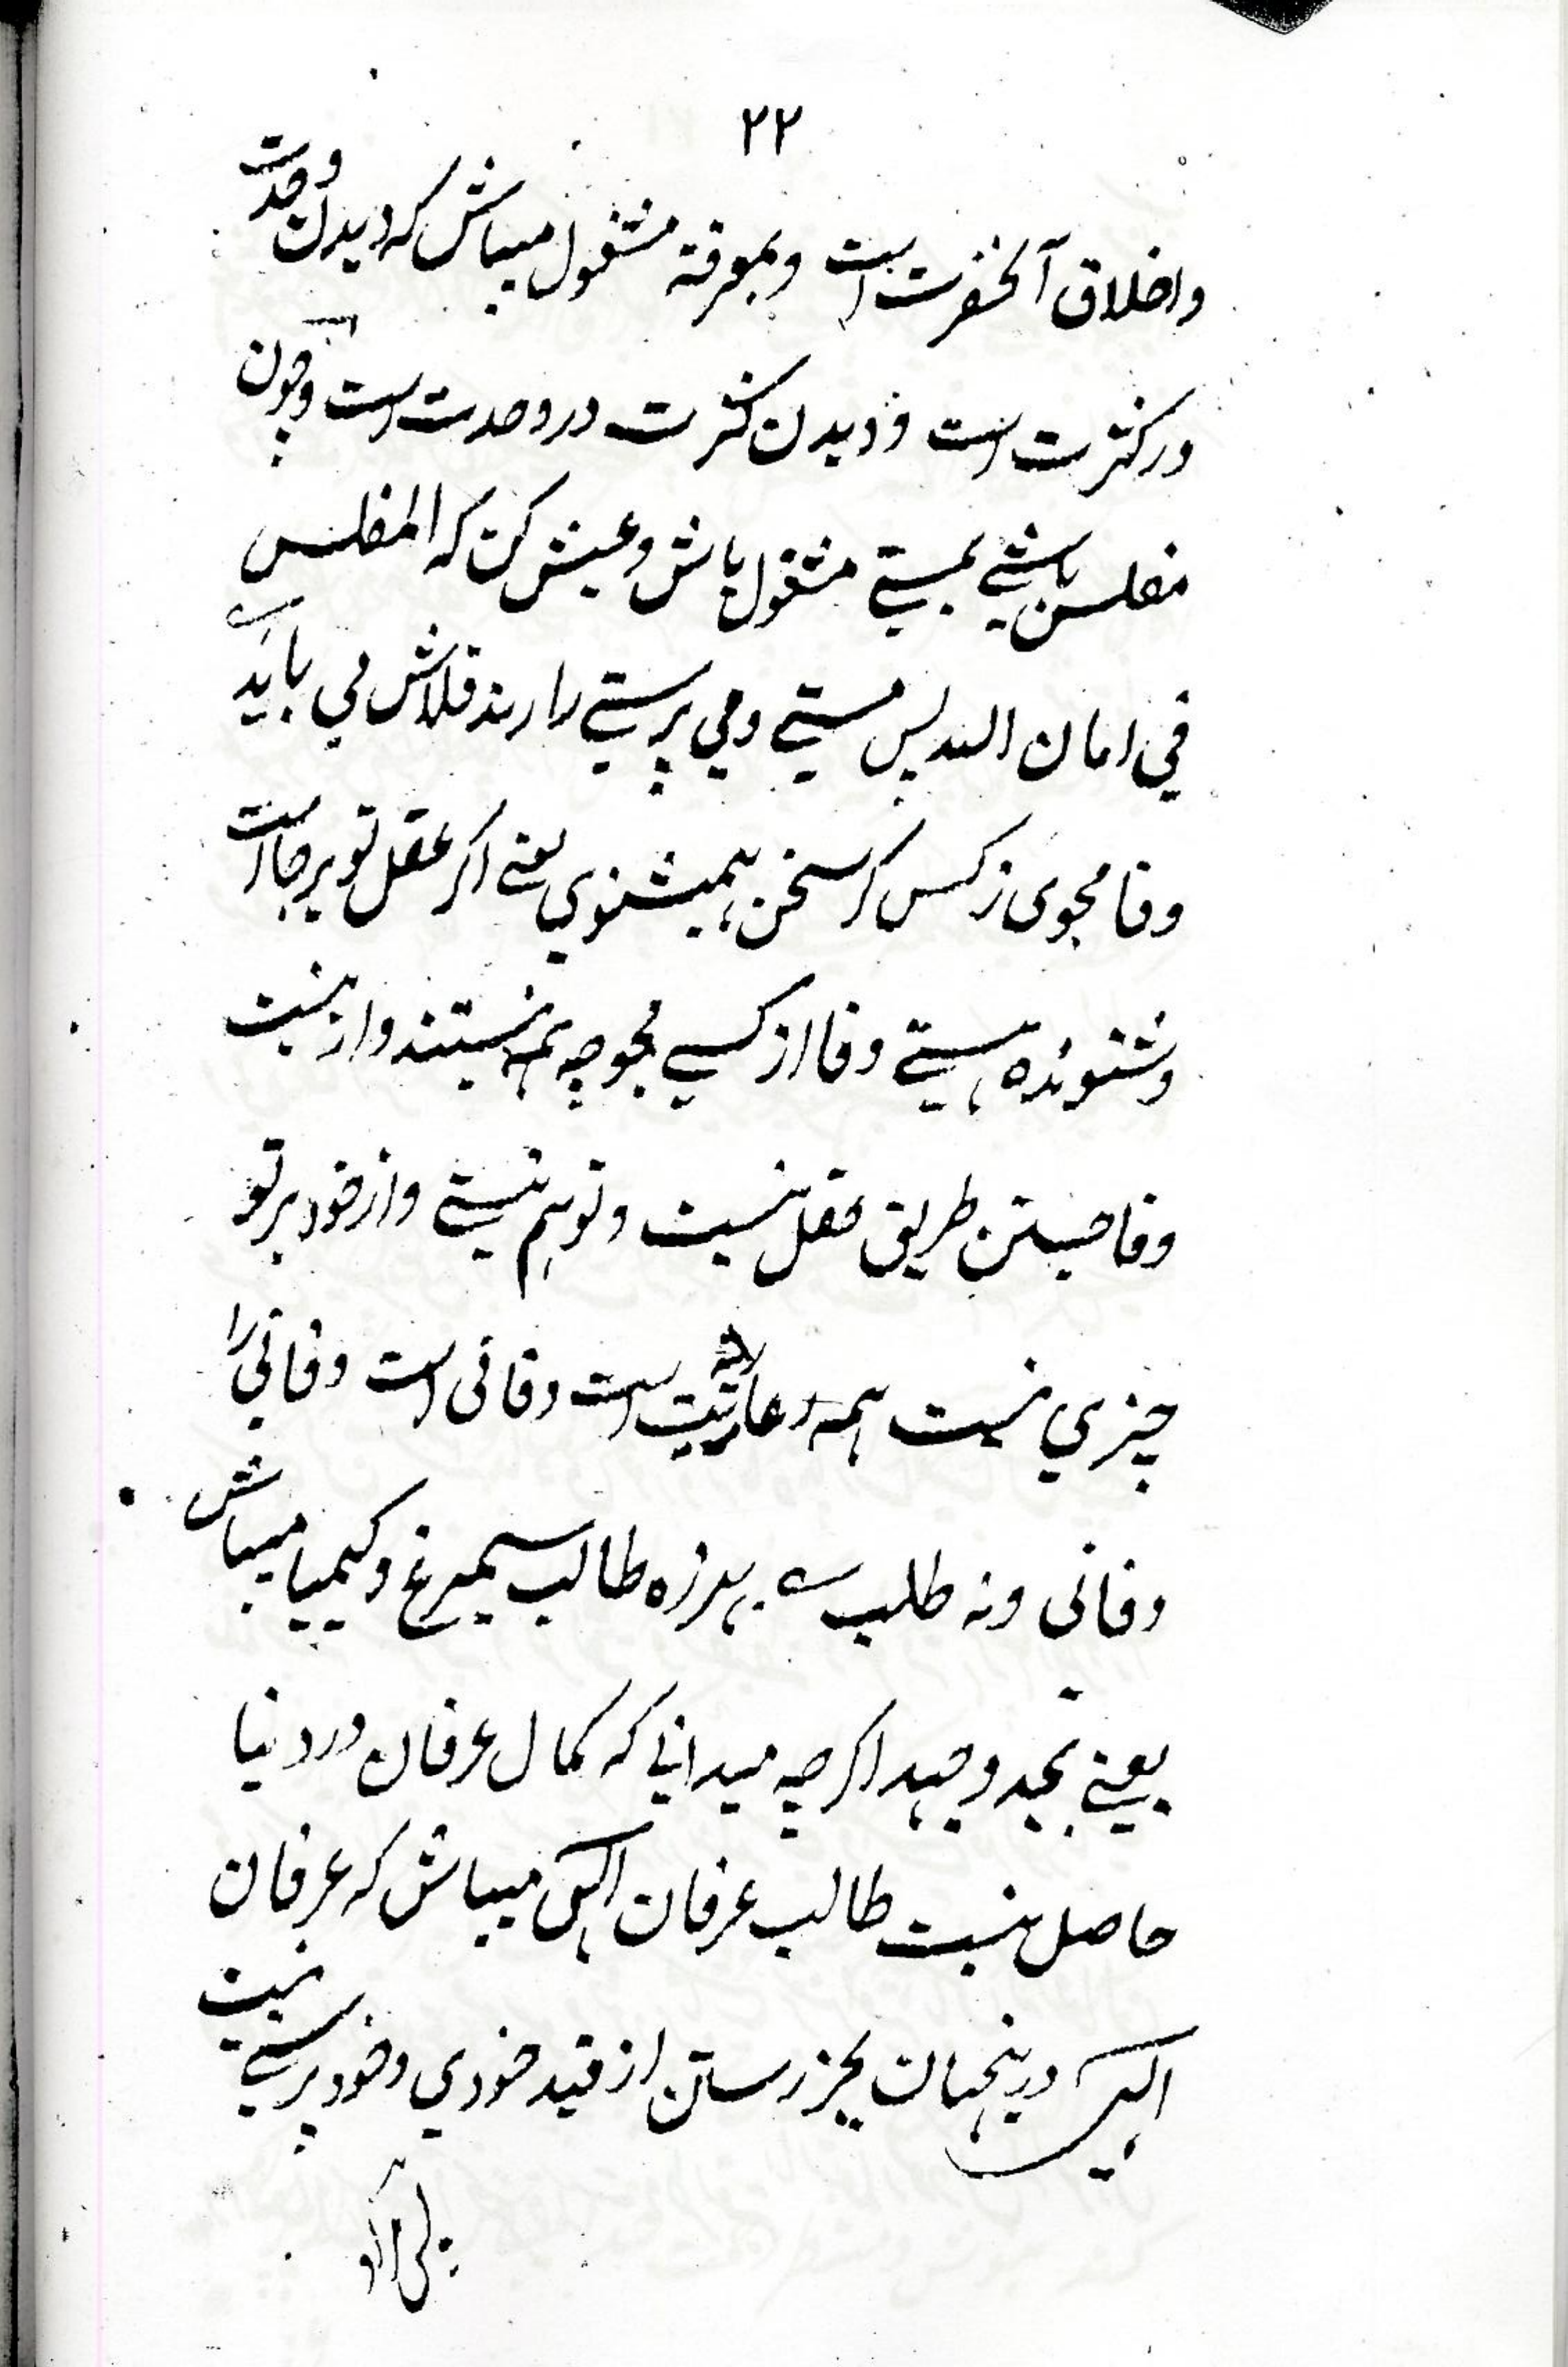 ۲۲
واخلاق آنحضرت است وبمعرفة مشغول میباش که دیدن وحدت
در کثرت است و دیدن کثرت در وحدت است وچون
مفلس باشی بمستی مشغول باش وعیش کن که المفلس
في امان الله پس مستی ومی پرستی را رند قلاش می باید
وفا مجوی زکس گر سخن همیشنوی یعنی اگر عقل تو برجا است
وشنونده هستی وفا از کسی مجو چه همه نیستند واز نیست
وفا جستن طریق عقل نیست وتو هم نیستی واز خود بر تو
چیزي نیست همه عاریتیت است وفانی است وفانی را
وفانی ونه طلب بهرزه طالب سیمرغ وکیمیا میباش
یعنی بجد وجهد اگرچه میدانی که کمال عرفان در دنیا
حاصل نیست طالب عرفان الهی میباش که عرفان
الهی درینجهان بجز رستن از قید خودي وخود پرستی نیست